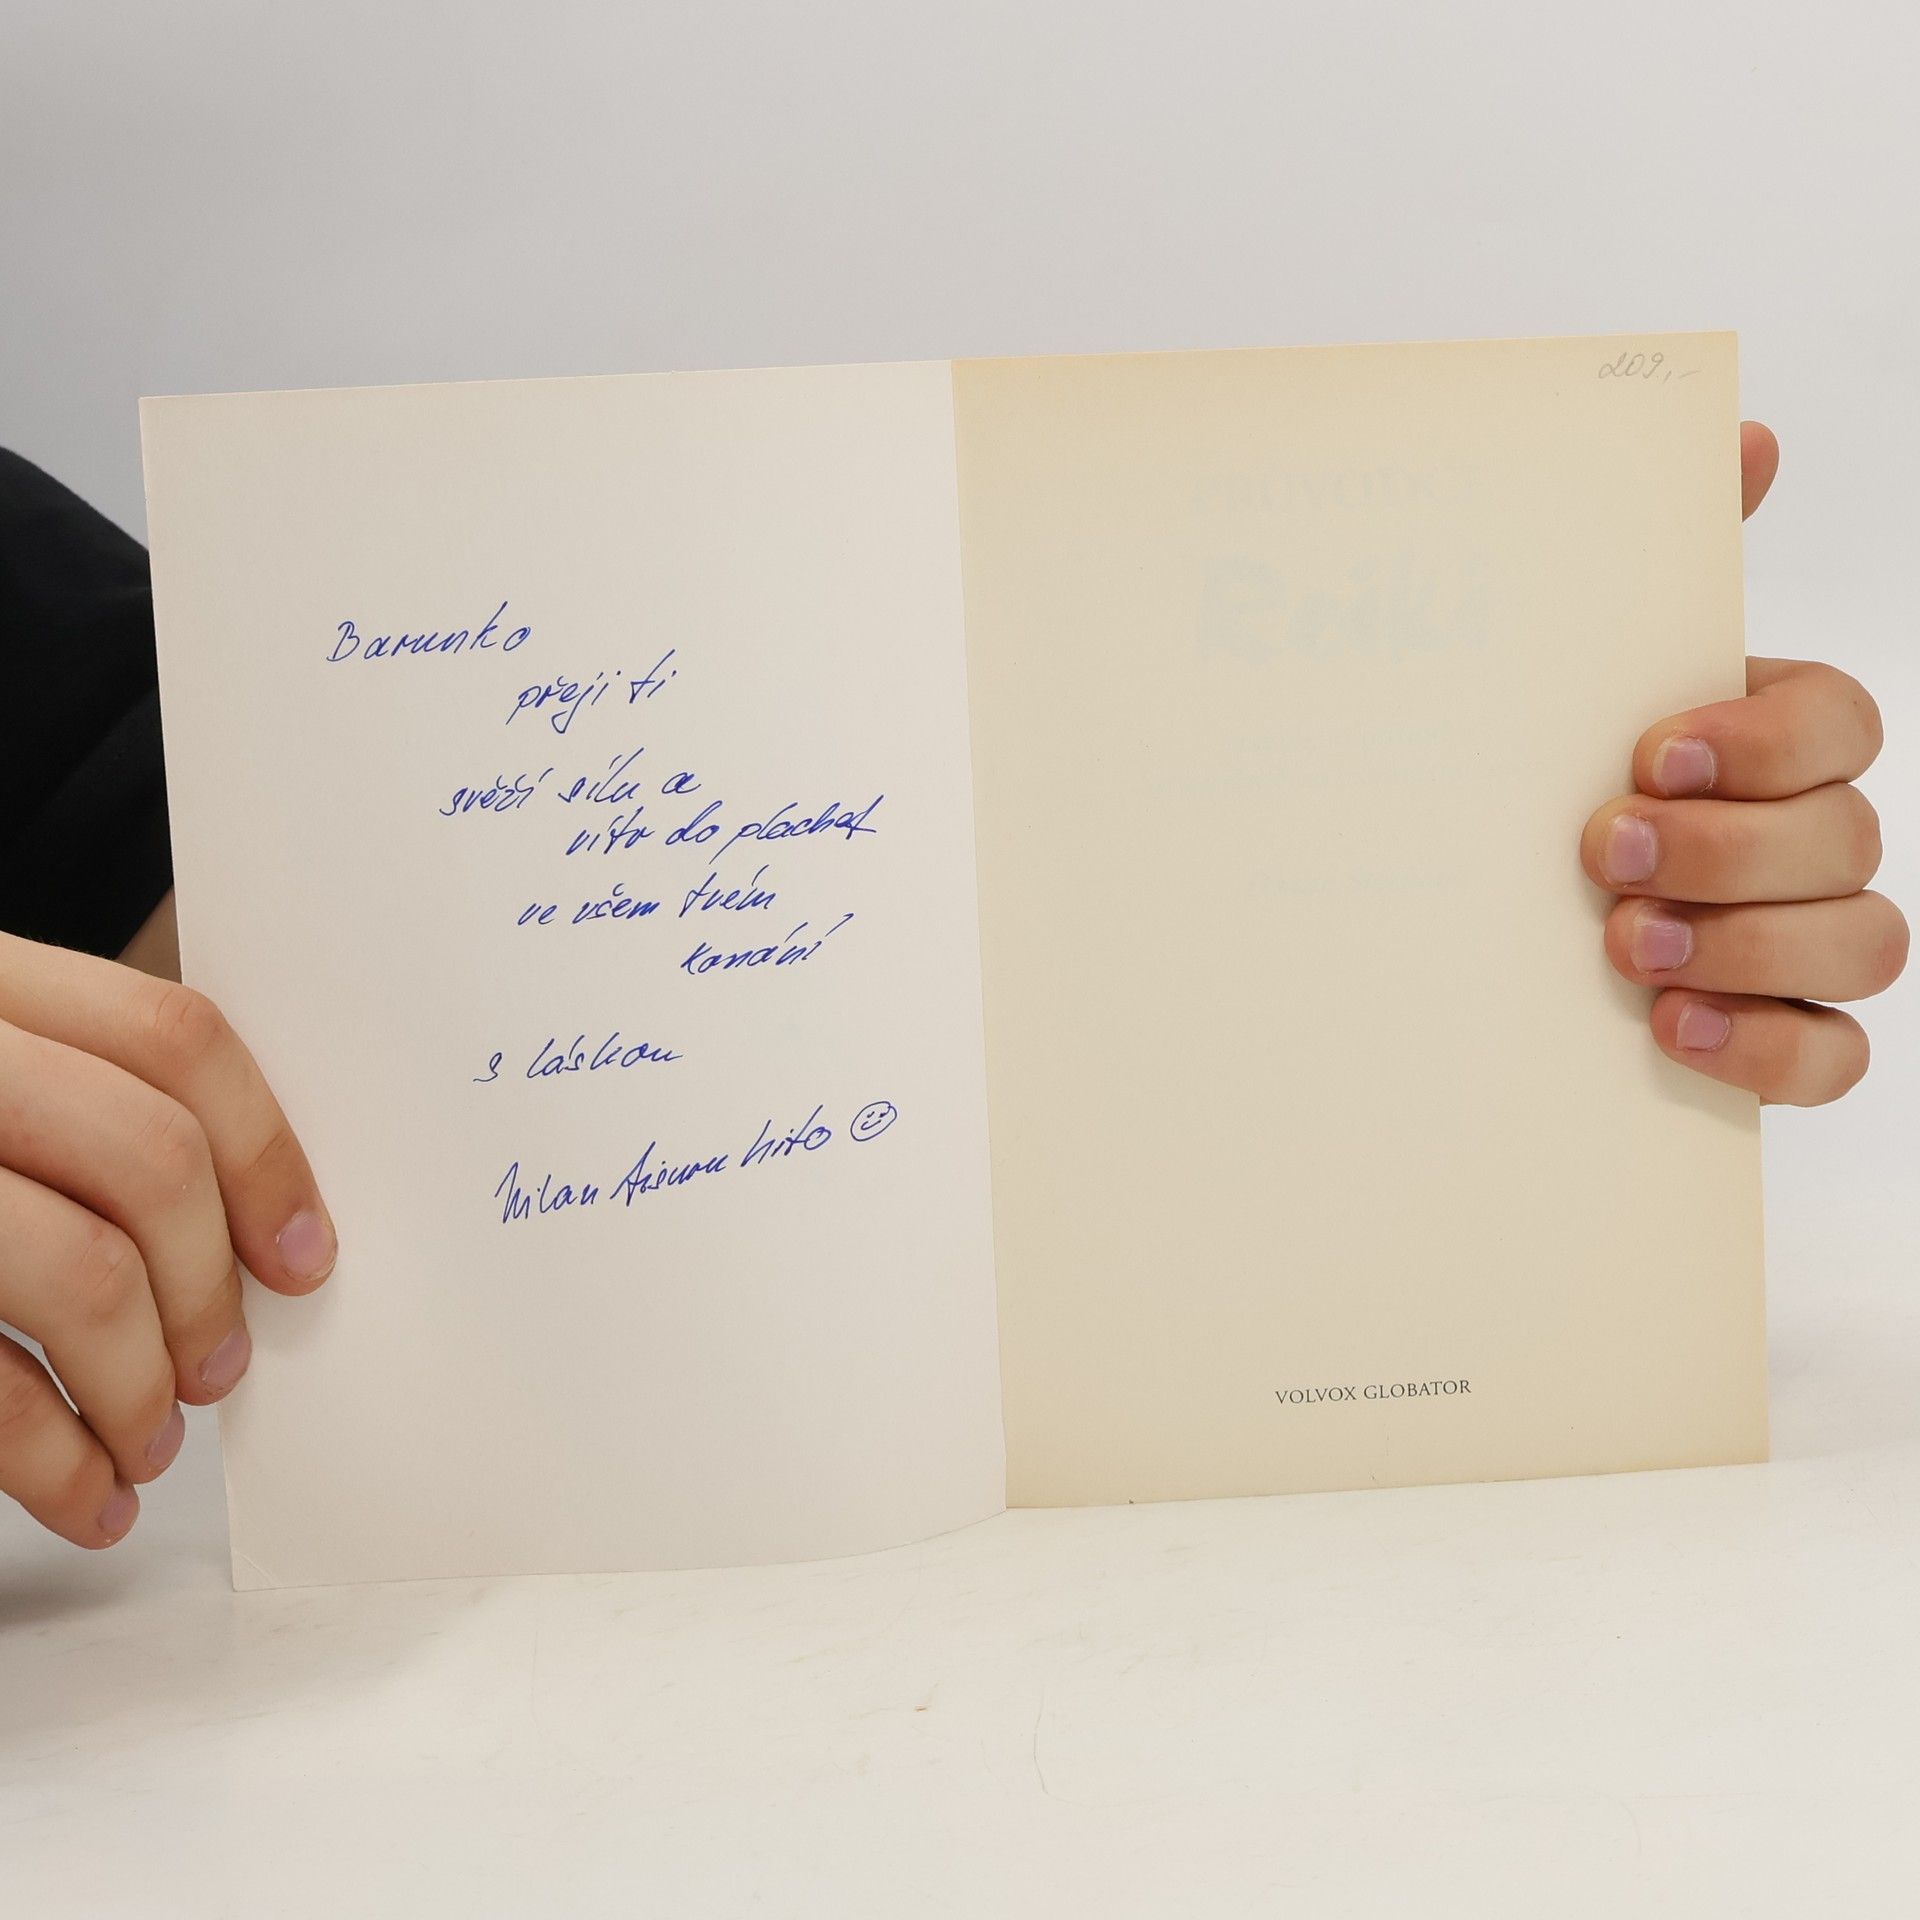 Barunko
přeji ti
svěží sílu a
vítr do plachet
ve všem tvém
konání
s láskou
Milan Aisuru hito
209,-
VOLVOX GLOBATOR